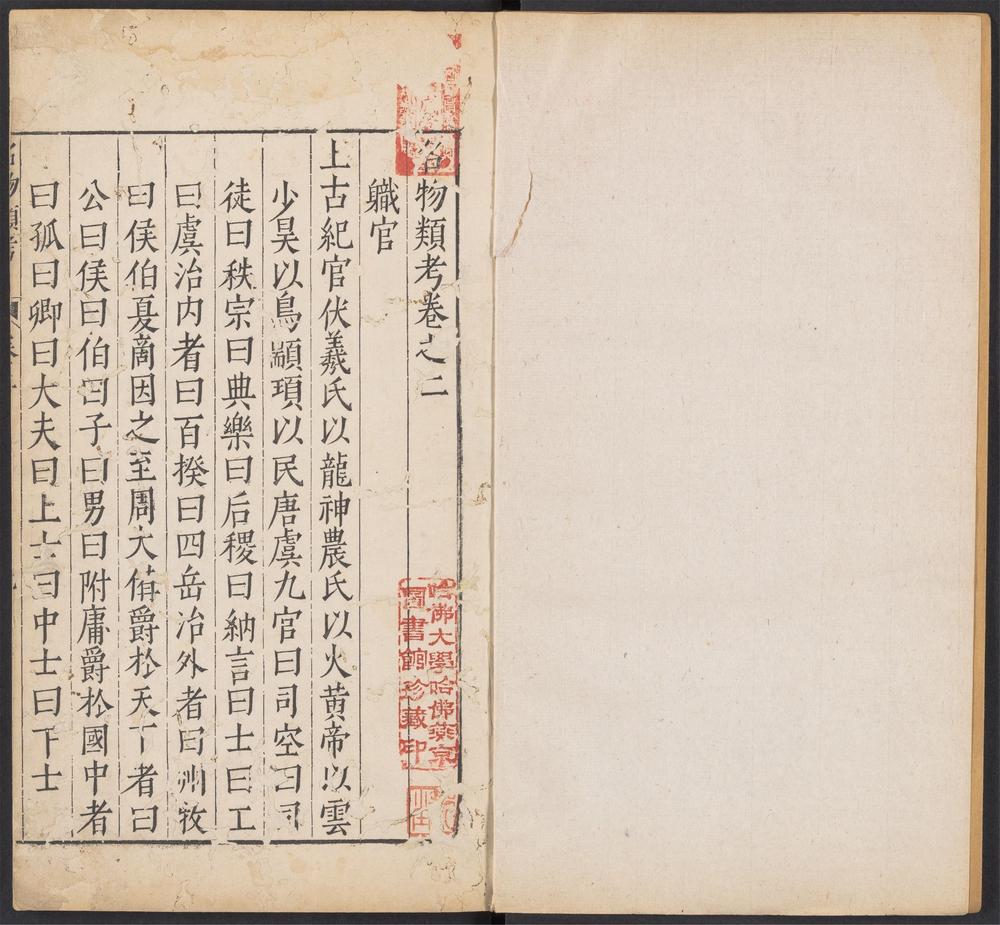 名物類考卷之二
職官
上古紀官伏羲氏以龍神農氏以火黄帝以雲
少昊以鳥顓頊以民唐虞九官曰司空曰司
徒曰秩宗曰典樂曰后稷曰納言曰士曰工
曰虞治内者曰百揆曰四岳治外者曰州牧
曰侯伯夏商因之至周大備爵於天下者曰
公曰侯曰伯曰子曰男曰附庸爵於國中者
曰孤曰卿曰大夫曰上士曰中士曰下士
名物類考
哈佛大學哈佛燕京
圖書館珍藏印